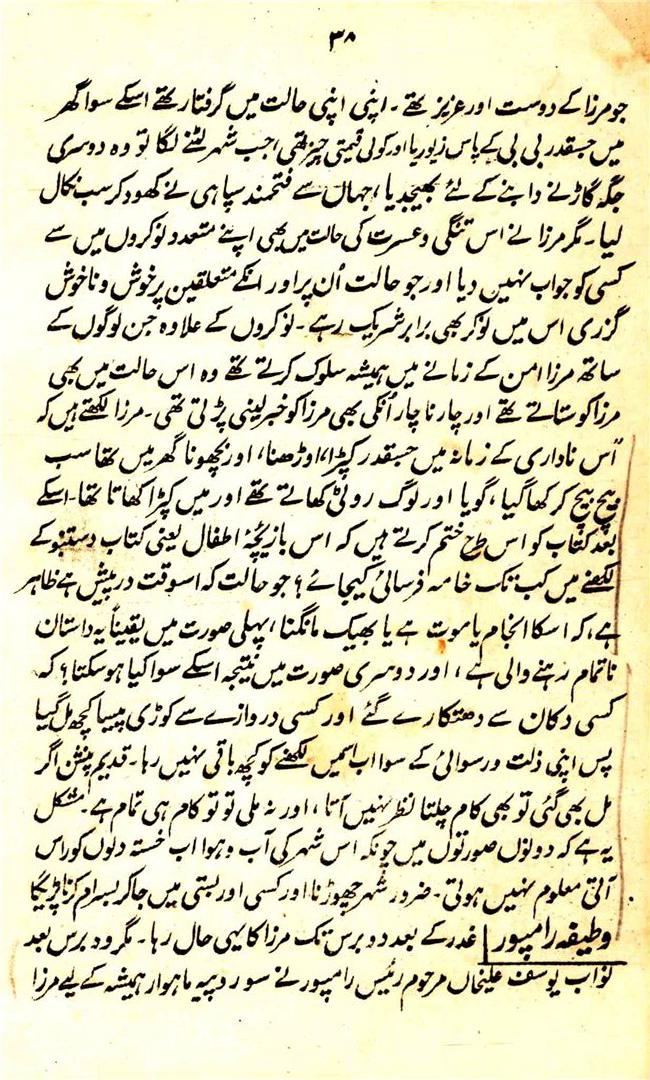 ۳۸
جو مرزا کے دوست اور عزیز تھے۔ اپنی اپنی حالت میں گرفتار تھے اسکے سوا گھر
میں جسقدر بی بی کے پاس زیور یا اور کوئی قیمتی چیز تھی، جب شہر لٹنے لگا تو وہ دوسری
جگہ گاڑنے دابنے کے لئے بھیجدیا، جہاں سے فتحمند سپاہی نے کھود کر سب نکال
لیا۔ مگر مرزا نے اس تنگی و عسرت کی حالت میں بھی اپنے متعدد نوکروں میں سے
کسی کو جواب نہیں دیا اور جو حالت اُن پر اور انکے متعلقین پر خوش و ناخوش
گزری اس میں نوکر بھی برابر شریک رہے۔ نوکروں کے علاوہ جن لوگوں کے
ساتھ مرزا امن کے زمانے میں ہمیشہ سلوک کرتے تھے وہ اس حالت میں بھی
مرزا کو ستاتے تھے اور چار ناچار اُنکی بھی مرزا کو خبر لینی پڑتی تھی۔ مرزا لکھتے ہیں کہ
"اُس ناداری کے زمانہ میں جسقدر کپڑا، اوڑھنا، اور بچھونا گھر میں تھا سب
بیچ بیچ کر کھا گیا، گویا اور لوگ روٹی کھاتے تھے اور میں کپڑا کھاتا تھا۔ اسکے
بعد کتاب کو اس طرح ختم کرتے ہیں کہ اس بازیچۂ اطفال یعنی کتاب دستنبو کے
لکھنے میں کب تک خامہ فرسائی کیجائے؟ جو حالت کہ اسوقت درپیش ہے ظاہر
ہے، کہ اسکا انجام یا موت ہے یا بھیک مانگنا، پہلی صورت میں یقیناً یہ داستان
ناتمام رہنے والی ہے، اور دوسری صورت میں نتیجہ اسکے سوا کیا ہو سکتا؟ کہ
کسی دکان سے دھتکارے گئے اور کسی دروازے سے کوڑی پیسا کچھ مل گیا
پس اپنی ذلت و رسوائی کے سوا اب اسمیں لکھنے کو کچھ باقی نہیں رہا۔ قدیم پنشن اگر
مل بھی گئی تو بھی کام چلتا نظر نہیں آتا، اور نہ ملی تو تو کام ہی تمام ہے۔ مشکل
یہ ہے کہ دونوں صورتوں میں چونکہ اس شہر کی آب و ہوا اب خستہ دلوں کو راس
آتی معلوم نہیں ہوتی۔ ضرور شہر چھوڑنا اور کسی اور بستی میں جا کر بسرام کرنا پڑیگا
وظیفہ رامپور غدر کے بعد دو برس تک مرزا کا یہی حال رہا۔ مگر دو برس بعد
نواب یوسف علیخاں مرحوم رئیس رامپور نے سو روپیہ ماہوار ہمیشہ کے لیے مرزا